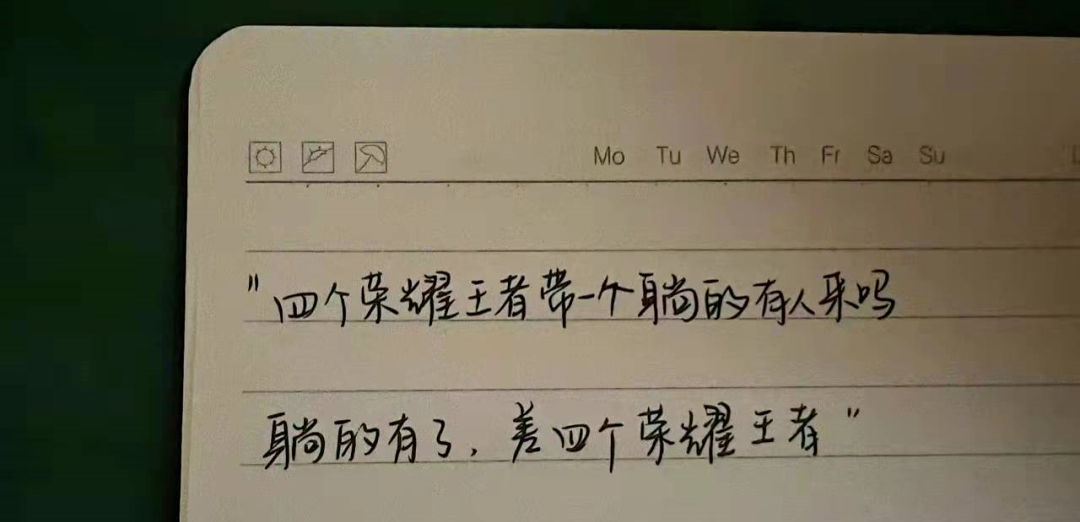 Mo Tu We Th Fr Sa Su
"四个荣耀王者带一个躺的有人来吗
躺的有了，差四个荣耀王者"